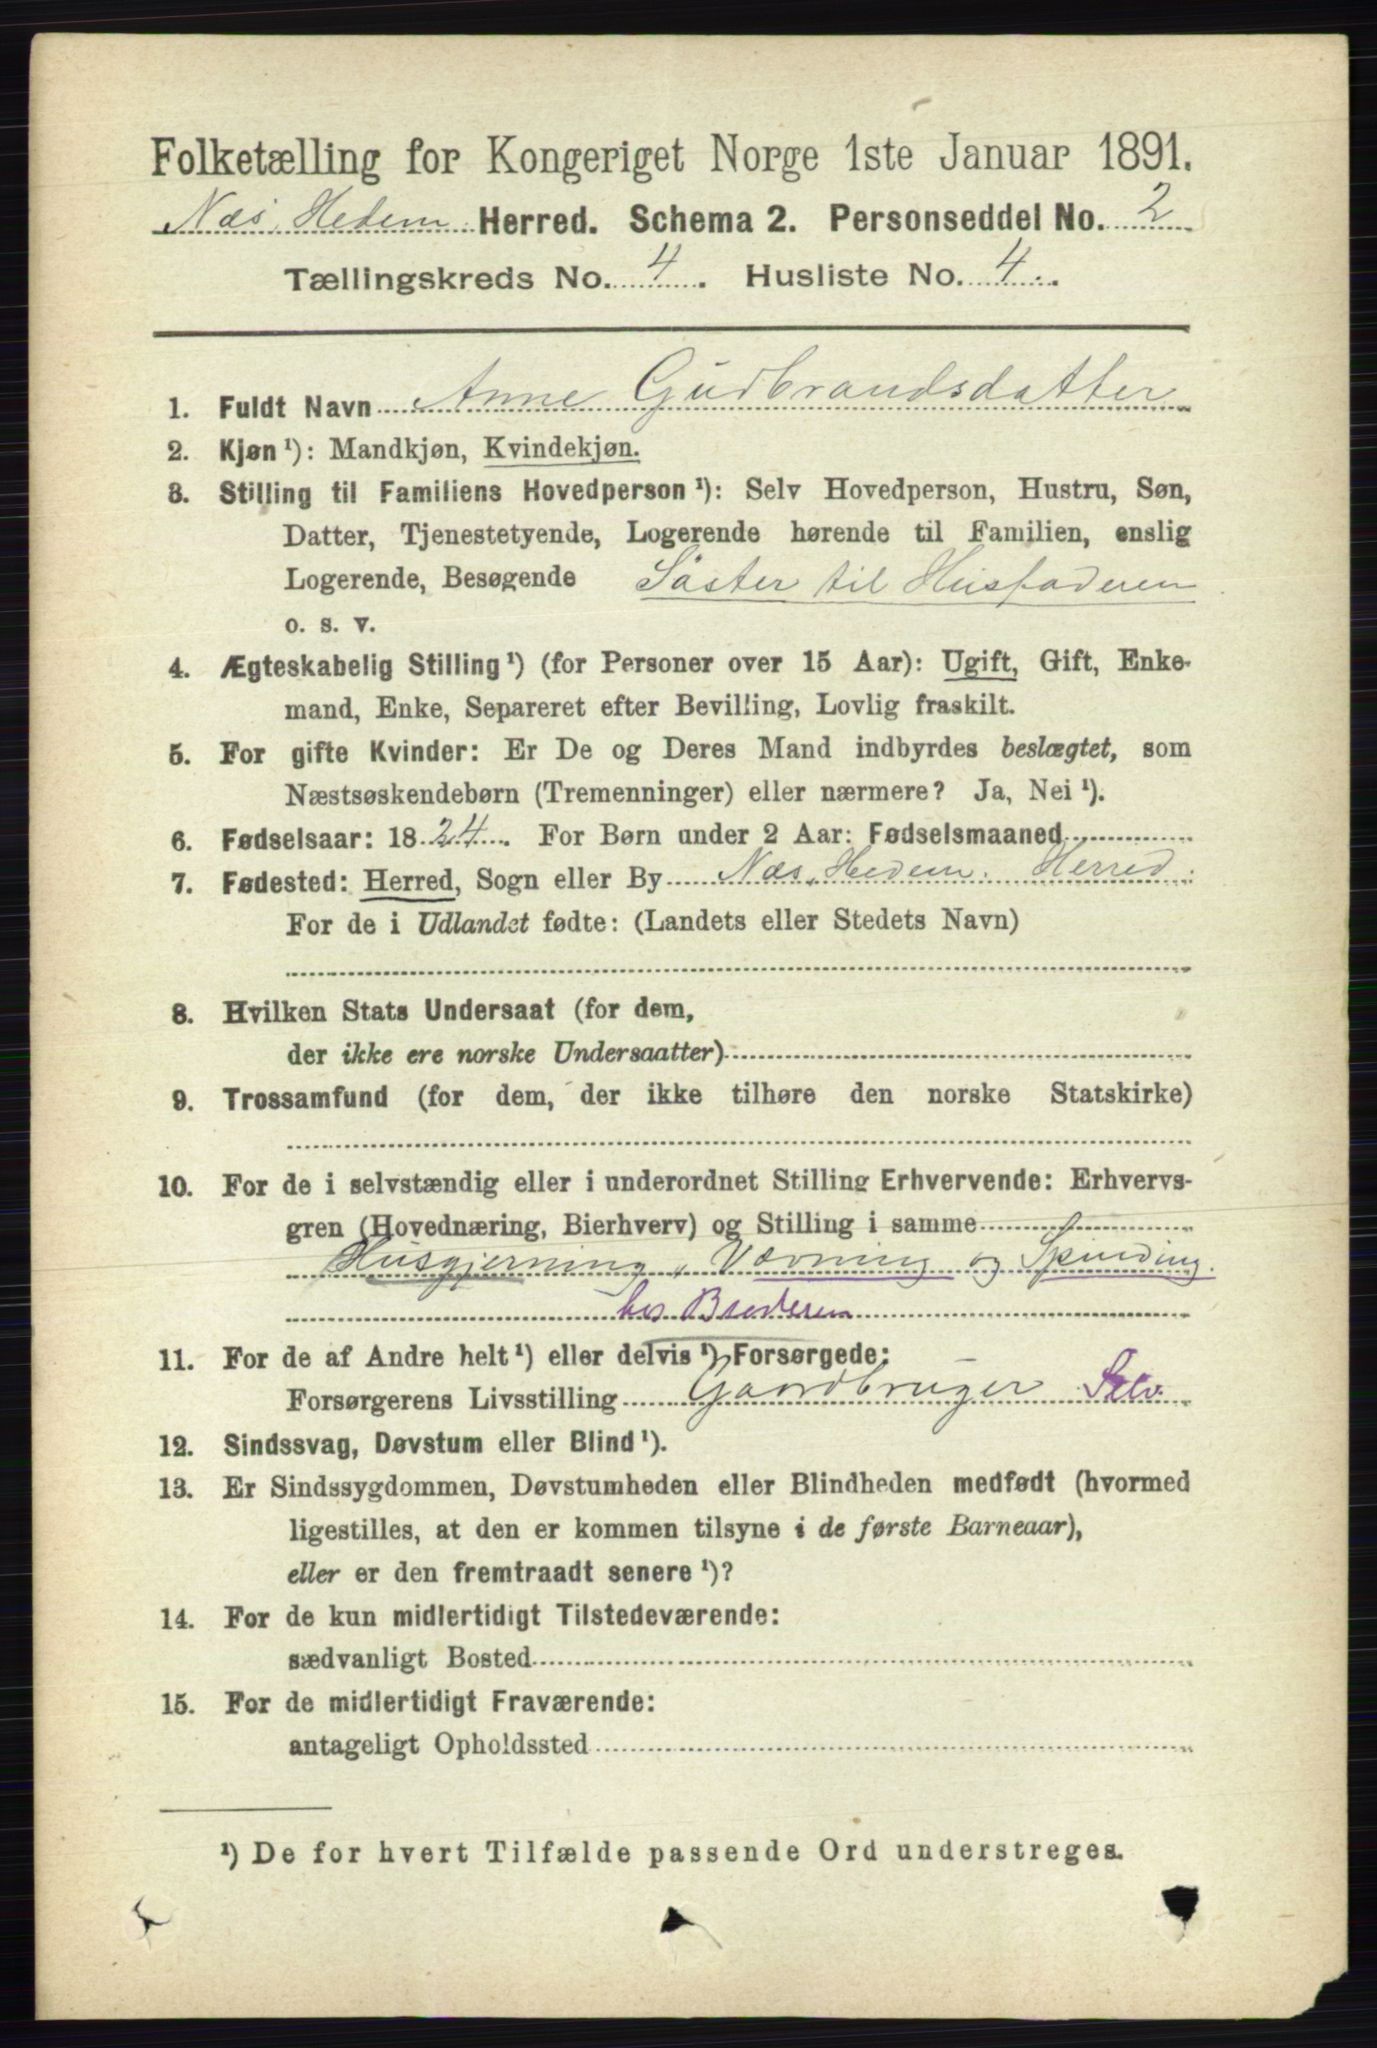 Folketælling for Kongeriget Norge 1ste Januar 1891.
Næs, Hedem. Herred. Schema 2. Personseddel No. 2
Tællingskreds No. 4. Husliste No. 4.
1. Fuldt Navn Anne Gudbrandsdatter
2. Kjøn ¹): Mandkjøn, Kvindekjøn.
3. Stilling til Familiens Hovedperson ¹): Selv Hovedperson, Hustru, Søn,
Datter, Tjenestetyende, Logerende hørende til Familien, enslig
Logerende, Besøgende Søster til Husfaderen
o. s. v.
4. Ægteskabelig Stilling ¹) (for Personer over 15 Aar): Ugift, Gift, Enke-
mand, Enke, Separeret efter Bevilling, Lovlig fraskilt.
5. For gifte Kvinder: Er De og Deres Mand indbyrdes beslægtet, som
Næstsøskendebørn (Tremenninger) eller nærmere? Ja, Nei ¹).
6. Fødselsaar: 1824. For Børn under 2 Aar: Fødselsmaaned
7. Fødested: Herred, Sogn eller By Næs, Hedem. Herred.
For de i Udlandet fødte: (Landets eller Stedets Navn)
8. Hvilken Stats Undersaat (for dem,
der ikke ere norske Undersaatter)
9. Trossamfund (for dem, der ikke tilhøre den norske Statskirke)
10. For de i selvstændig eller i underordnet Stilling Erhvervende: Erhvervs-
gren (Hovednæring, Bierhverv) og Stilling i samme
Husgjerning, Vævning og Spinding.
hos Broderen
11. For de af Andre helt ¹) eller delvis ¹) Forsørgede:
Forsørgerens Livsstilling Gaardbruger Selv.
12. Sindssvag, Døvstum eller Blind ¹).
13. Er Sindssygdommen, Døvstumheden eller Blindheden medfødt (hvormed
ligestilles, at den er kommen tilsyne i de første Barneaar),
eller er den fremtraadt senere ¹)?
14. For de kun midlertidigt Tilstedeværende:
sædvanligt Bosted
15. For de midlertidigt Fraværende:
antageligt Opholdssted
¹) De for hvert Tilfælde passende Ord understreges.